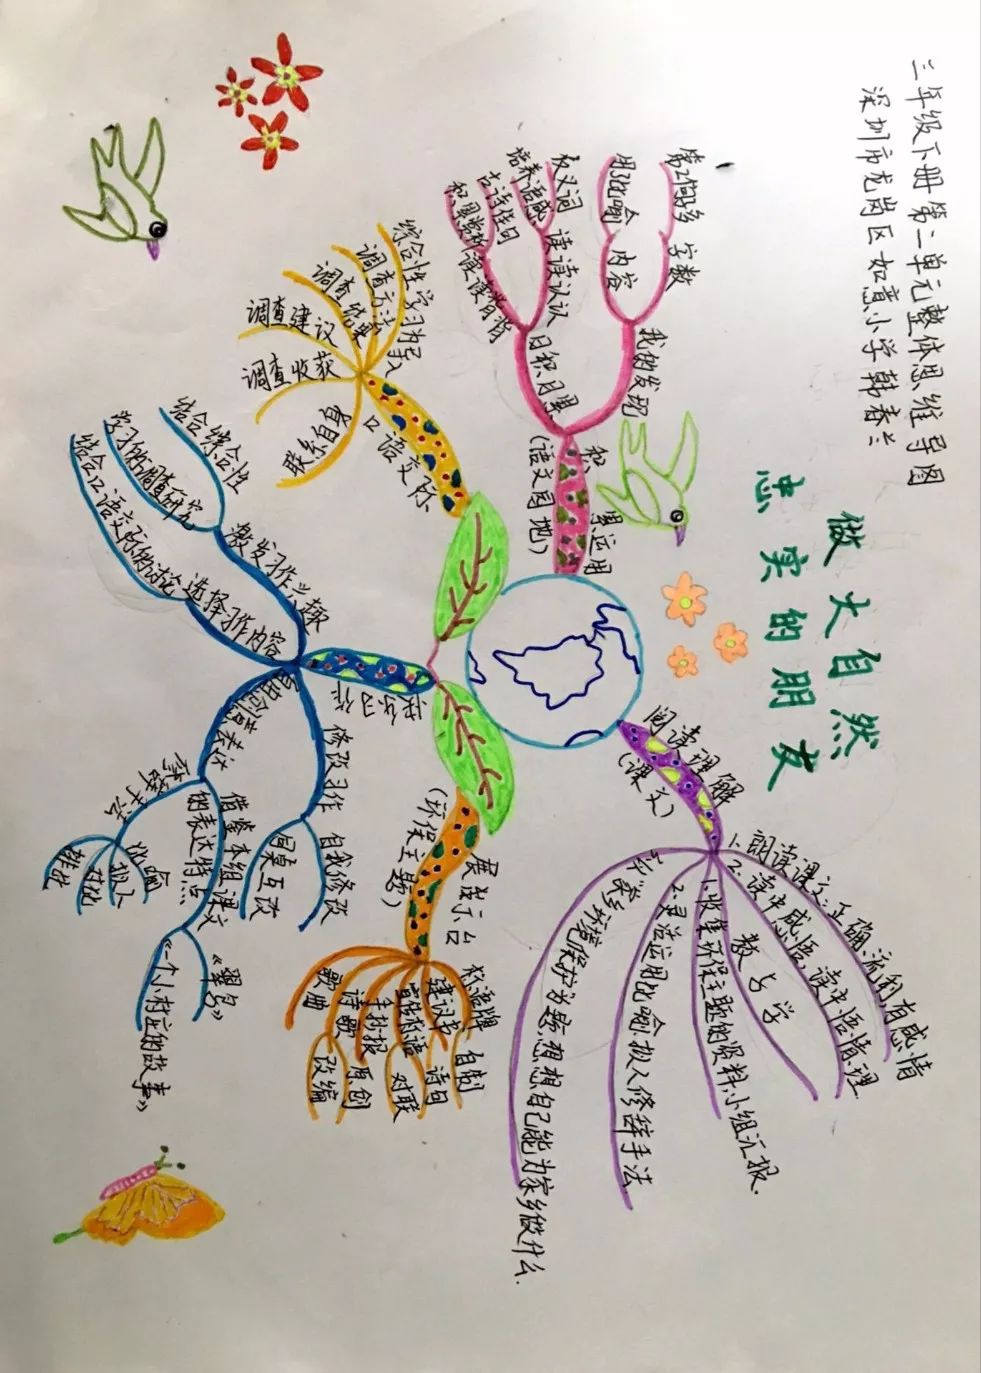 三年级下册第二单元整体思维导图
深圳市龙岗区如意小学韩春兰
做大自然
忠实的朋友
阅读理解
(课文)
1.朗读课文:正确、流利、有感情
2.读中感悟,读中悟情、理
教与学
1.收集环保主题的资料,小组汇报.
2.灵活运用比喻拟人修辞手法
环境保护为题,想想自己能为家乡做什么.
展示台
(环保主题)
警示牌
自制
建议书
诗句
宣传标语
对联
手抄报
诗歌
原创
歌曲
改编
快乐习作
修改习作
自我修改
同桌互改
表达
借鉴本组课文
的表达特点
《翠鸟》
《一个小村庄的故事》
比喻
拟人
对比
排比
激发习作兴趣
结合综合性
学习的调查研究
选择习作内容
结合口语交际的讨论
口语交际
综合性学习为导入
调查方法
调查结果
调查建议
调查收获
联系自身
积累运用
(语文园地)
我的发现
字数
内容
用比喻
日积月累
读读认认
读读背背
培养语感
古诗佳句
积累赏析